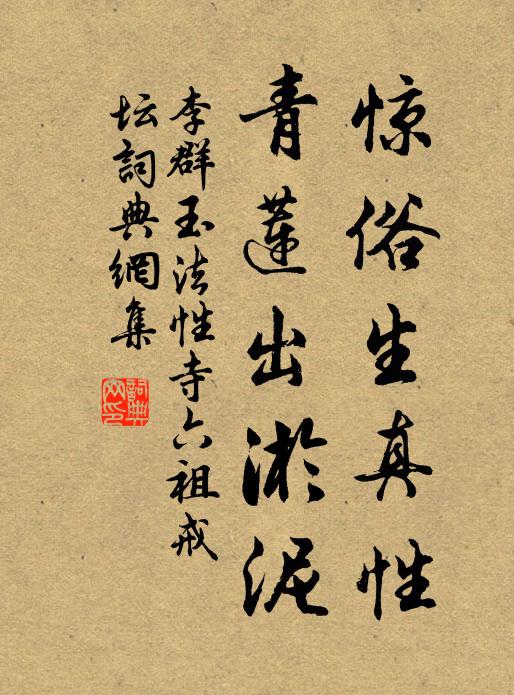 惊俗生真性
青莲出淤泥
李群玉法性寺六祖戒
坛詞典網集
詞典网印